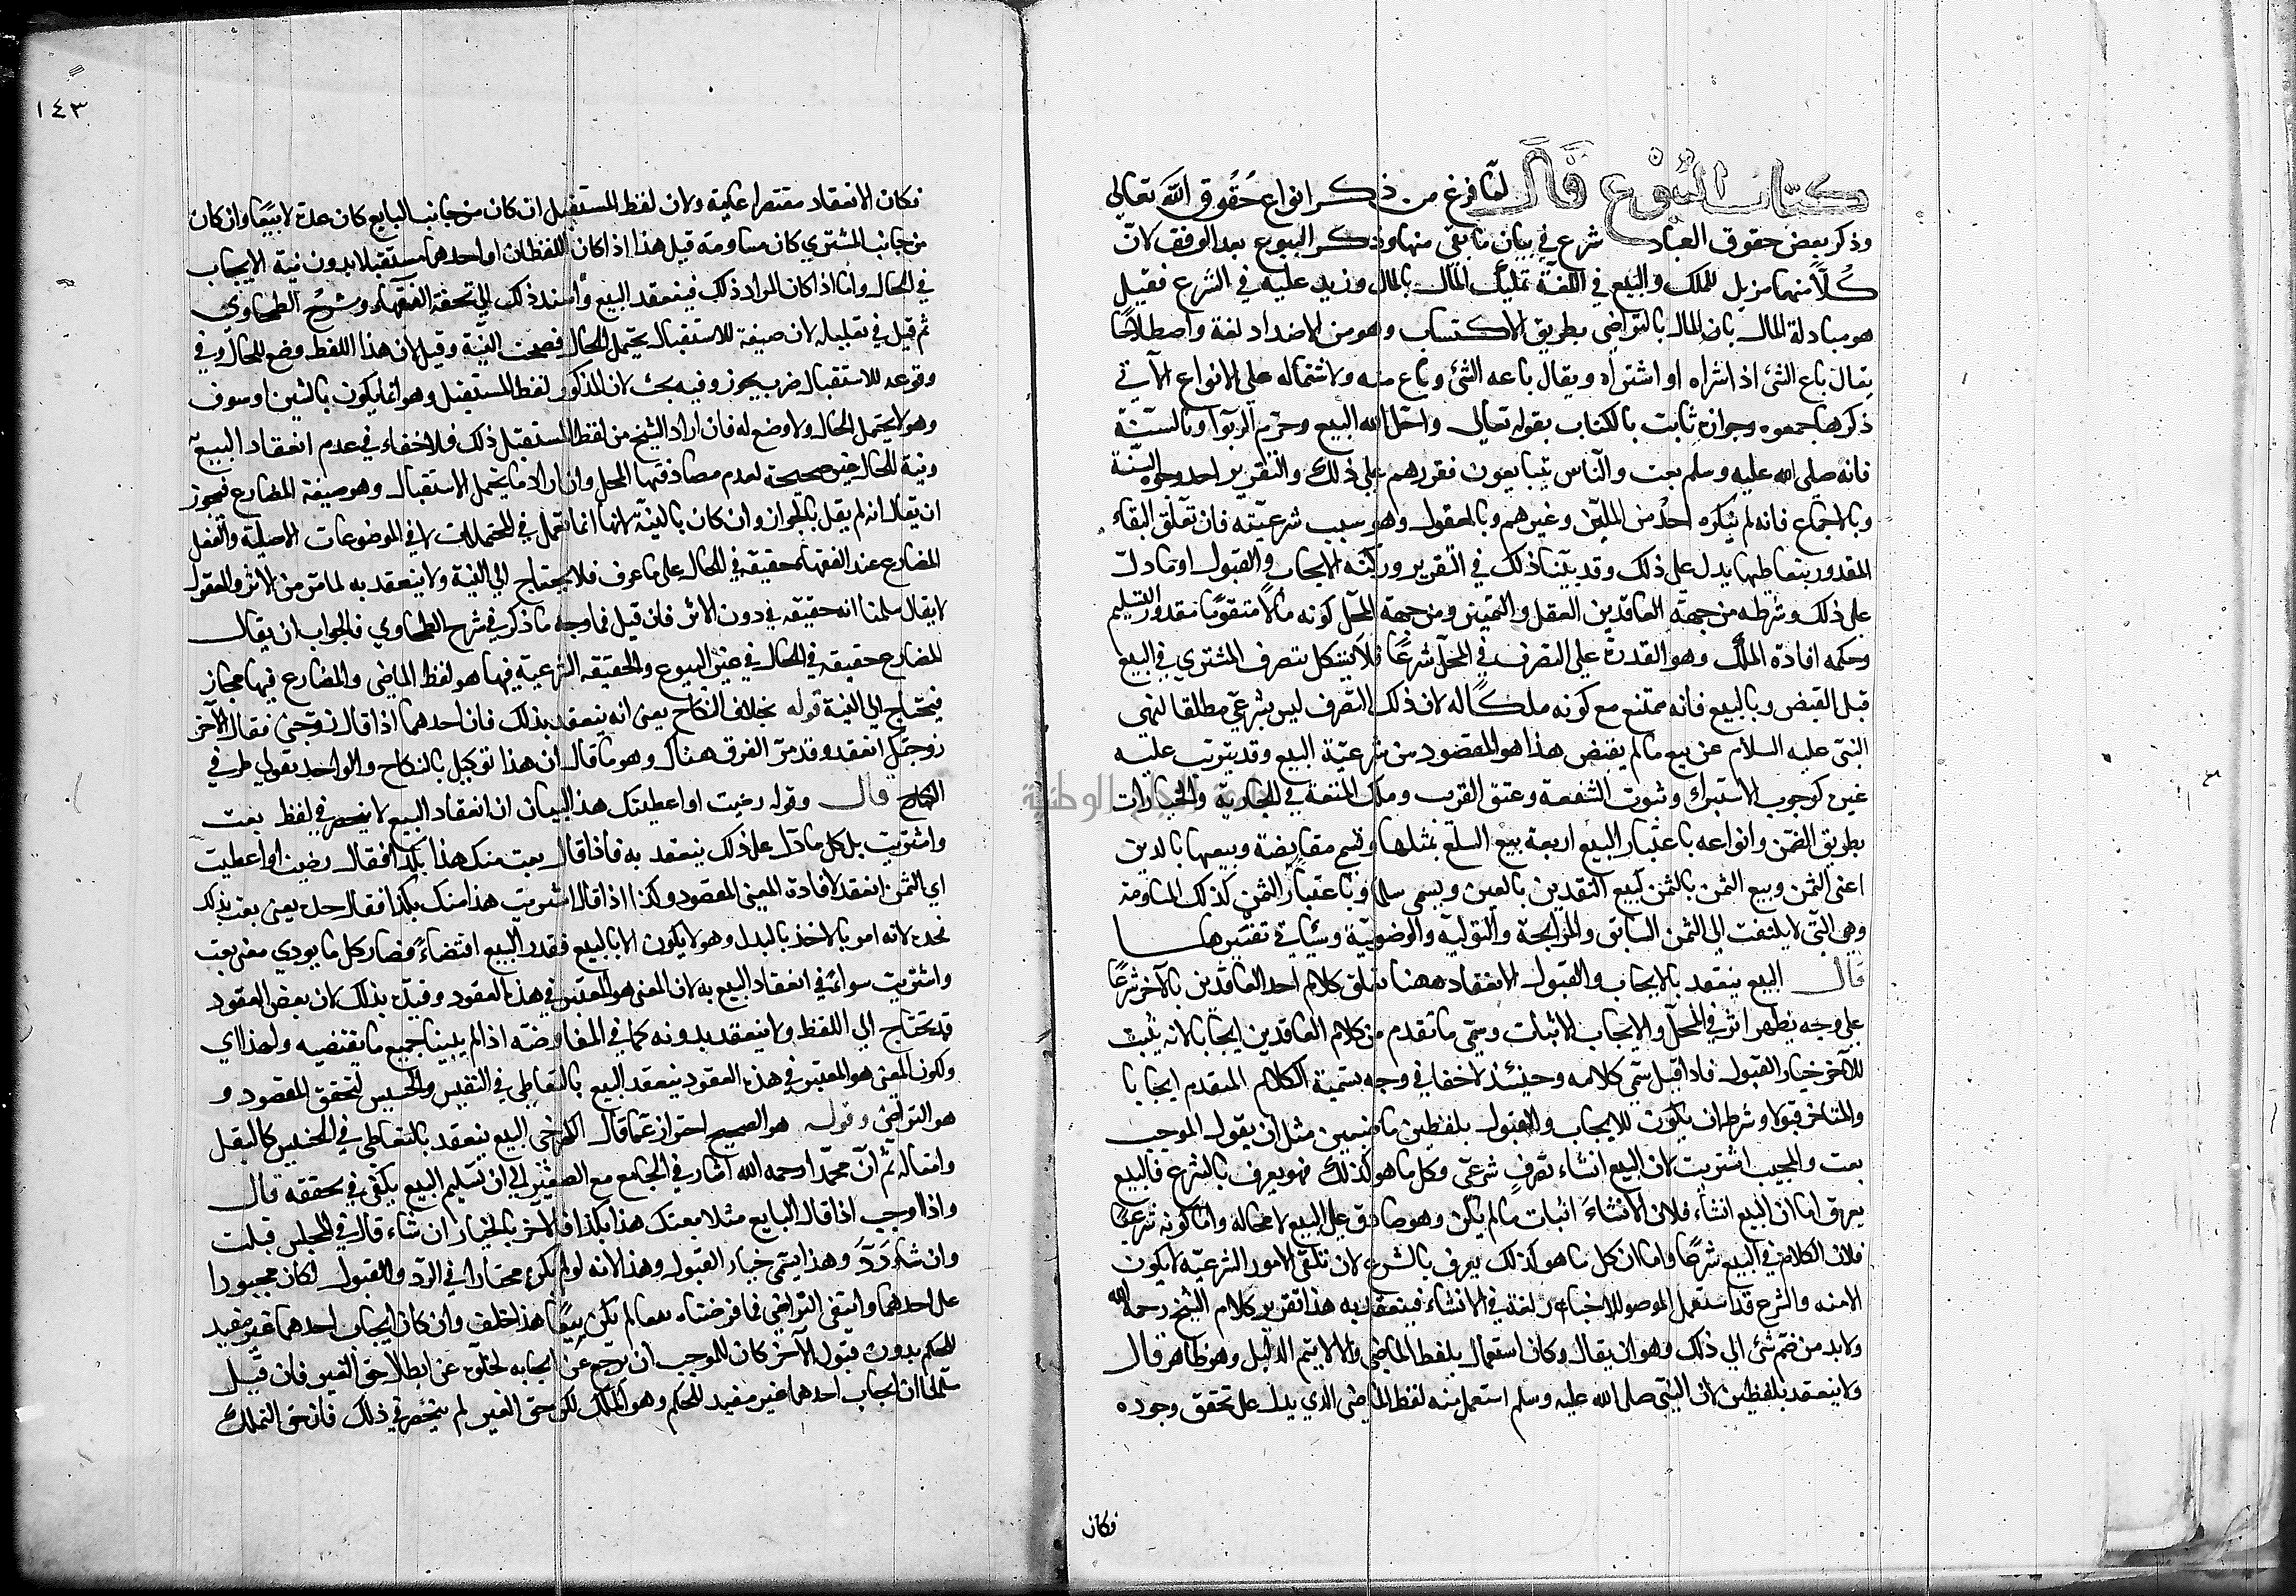 كتاب البيوع قال لما فرغ من ذكر انواع حقوق الله تعالى
وذكر بعض حقوق العباد شرع في بيان ما بقي منها وذكر البيوع بعد الوقف لان
كلا منهما مزيل للملك والبيع في اللغة تمليك المال بالمال وزيد عليه في الشرع فقيل
هو مبادلة المال بالمال بالتراضي بطريق الاكتساب وهو من الاضداد لغة واصطلاحا
يقال باع الشئ اذا شراه او اشتراه ويقال باعه الشئ وباع منه ولاشتماله على الانواع الآتي
ذكرها جمعوه وجوازه ثابت بالكتاب بقوله تعالى واحل الله البيع وحرم الربوا وبالسنة
فانه صلى الله عليه وسلم بعث والناس يتبايعون فقررهم على ذلك والتقرير احد وجوه السنة
وبالاجماع فانه لم ينكره احد من المليين وغيرهم وبالمعقول وهو سبب شرعيته فان تعلق البقاء
المقدور بتعاطيها يدل على ذلك وقد بينا ذلك في التقرير وركنه الايجاب والقبول او ما دل
على ذلك وشرطه من جهة العاقدين العقل والتمييز ومن جهة المحل كونه مالا متقوما مقدور التسليم
وحكمه افادة الملك وهو القدرة على التصرف في المحل شرعا فلا يشكل بتصرف المشتري في البيع
قبل القبض وبالبيع فانه ممتنع مع كونه ملكا له لان ذلك التصرف ليس بشرعي مطلقا لنهي
النبي عليه السلام عن بيع ما لم يقبض هذا هو المقصود من شرعية البيع وقد يترتب عليه
غيره كوجوب الاستبراء وثبوت الشفعة وعتق القريب وملك المتعة في الجارية والخيارات
بطريق الضمن وانواعه باعتبار البيع اربعة بيع السلع بمثلها ويسمى مقايضة وبيعها بالدين
اعني الثمن وبيع الثمن بالثمن كبيع النقدين بالعين ويسمى سلما وباعتبار الثمن كذلك المساومة
وهي التي لا يلتفت الى الثمن السابق والمرابحة والتولية والوضعية وسيأتي تفسيرها
قال البيع ينعقد بالايجاب والقبول الانعقاد ههنا تعلق كلام احد العاقدين بالآخر شرعا
على وجه يظهر اثره في المحل والايجاب الاثبات ويسمى ما تقدم من كلام العاقدين ايجابا لانه يثبت
للآخر خيار القبول فاذا قبل سمي كلامه وحينئذ لا خفا في وجه تسمية الكلام المتقدم ايجابا
والمتاخر قبولا وشرط ان يكون للايجاب والقبول بلفظين ماضيين مثل ان يقول الموجب
بعت والمجيب اشتريت لان البيع انشاء تصرف شرعي وكل ما هو كذلك فهو يعرف بالشرع فالبيع
يعرف اما ان البيع انشاء فلان الانشاء اثبات ما لم يكن وهو صادق على البيع لا محالة واما كونه شرعيا
فلان الكلام في البيع شرعا واما ان كل ما هو كذلك يعرف بالشرع لان تلقى الامور الشرعية لا يكون
الا منه والشرع قد استعمل الموضوع للاخبار لغة في الانشاء فينعقد به هذا تقرير كلام الشيخ رحمه الله
ولا بد من ضم شئ الى ذلك وهو ان يقال وكان استعماله بلفظ الماضي والا لا يتم الدليل وهو ظاهر قال
ولا ينعقد بلفظين لان النبي صلى الله عليه وسلم استعمل منه لفظ الماضي الذي يدل على تحقق وجوده
فكان
١٤٣
فكان الانعقاد مقتصرا عليه ولان لفظ المستقبل ان كان من جانب البايع كان عدة لا بيعا وان كان
من جانب المشتري كان مساومة قيل هذا اذا كان اللفظان او احدهما مستقبلا بدون نية الايجاب
في الحال واما اذا كان المراد ذلك فينعقد البيع واسند ذلك الى تحفة الفقهاء وشرح الطحاوي
ثم قيل في تعليله لان صيغة للاستقبال يحتمل الحال فصحت النية وقيل لان هذا اللفظ وضع للحال وفي
وقوعه للاستقبال ضرب يجوز وفيه بحث لان المذكور لفظ المستقبل وهو انما يكون بالسين او سوف
وهو لا يحتمل الحال ولا وضع له فان اراد الشيخ من لفظ المستقبل ذلك فلا خفاء في عدم انعقاد البيع به
ونية للحال غير صحيحة لعدم مصادفتها المحل وان اراد ما يحتمل الاستقبال وهو صيغة المضارع فيجوز
ان يقال انه لم يقل بالجواز وان كان بالنية لانها انما تعمل في المحتملات لا في الموضوعات الاصلية والفعل
المضارع عند الفقهاء حقيقة في الحال على ما عرف فلا يحتاج الى النية ولا ينعقد به لما مر من الاثر والمعقول
لا يقال سلمنا انه حقيقة في دون الاثر فان قيل فما وجه ما ذكر في شرح الطحاوي فالجواب ان يقال
المضارع حقيقة في الحال في غير البيوع والحقيقة الشرعية فيها هو لفظ الماضي والمضارع فيها مجاز
فيحتاج الى النية قوله بخلاف النكاح يعني انه ينعقد بذلك فان احدهما اذا قال زوجني فقال الآخر
زوجتك انعقد وقد مر الفرق هناك وهو ما قال ان هذا توكيل بالنكاح والواحد يتولى طرفي
النكاح قال وقوله رضيت او اعطيتك هذا لبيان ان انعقاد البيع لا ينحصر في لفظ بعت
واشتريت بل كل ما دل على ذلك ينعقد به فاذا قال بعت منك هذا بكذا فقال رضيت او اعطيت
اي الثمن انعقد لافادة المعنى المقصود وكذا اذا قال اشتريت هذا منك بكذا فقال خذه يعني بعت بذلك
فخذه لانه امر بالاخذ بالبدل وهو لا يكون الا بالبيع فقدر البيع اقتضاء فصار كل ما يؤدي معنى بعت
واشتريت سواء في انعقاد البيع به لان المعنى هو المعتبر في هذه العقود وقيد بذلك لان بعض العقود
قد يحتاج الى اللفظ ولا ينعقد بدونه كما في المفاوضة اذا لم يبينا جميع ما تقتضيه ولهذا اي
ولكون المعنى هو المعتبر في هذه العقود ينعقد البيع بالتعاطي في النفيس والخسيس لتحقق المقصود و
هو التراضي وقوله هو الصحيح احتراز عما قال الكرخي البيع ينعقد بالتعاطي في الخسيس كالبقل
وامثاله ثم ان محمدا رحمه الله اشار في الجامع مع الصغير الى ان تسليم البيع يكفي في تحققه قال
واذا اوجب اذا قال البايع مثلا بعتك هذا بكذا فالآخر بالخيار ان شاء قال في المجلس قبلت
وان شاء رد وهذا يسمى خيار القبول وهذا لانه لو لم يكن مختارا في الرد والقبول لكان مجبورا
على احدهما وانتفى التراضي فما فرضناه بيعا لم يكن بيعا هذا خلف وان كان ايجاب احدهما غير مفيد
للحكم بدون قبول الآخر كان للموجب ان يرجع عن ايجابه لخلوه عن ابطال حق الغير فان قيل
سلمنا ان ايجاب احدهما غير مفيد للحكم وهو الملك لكن حق الغير لم ينحصر في ذلك فان حق التملك